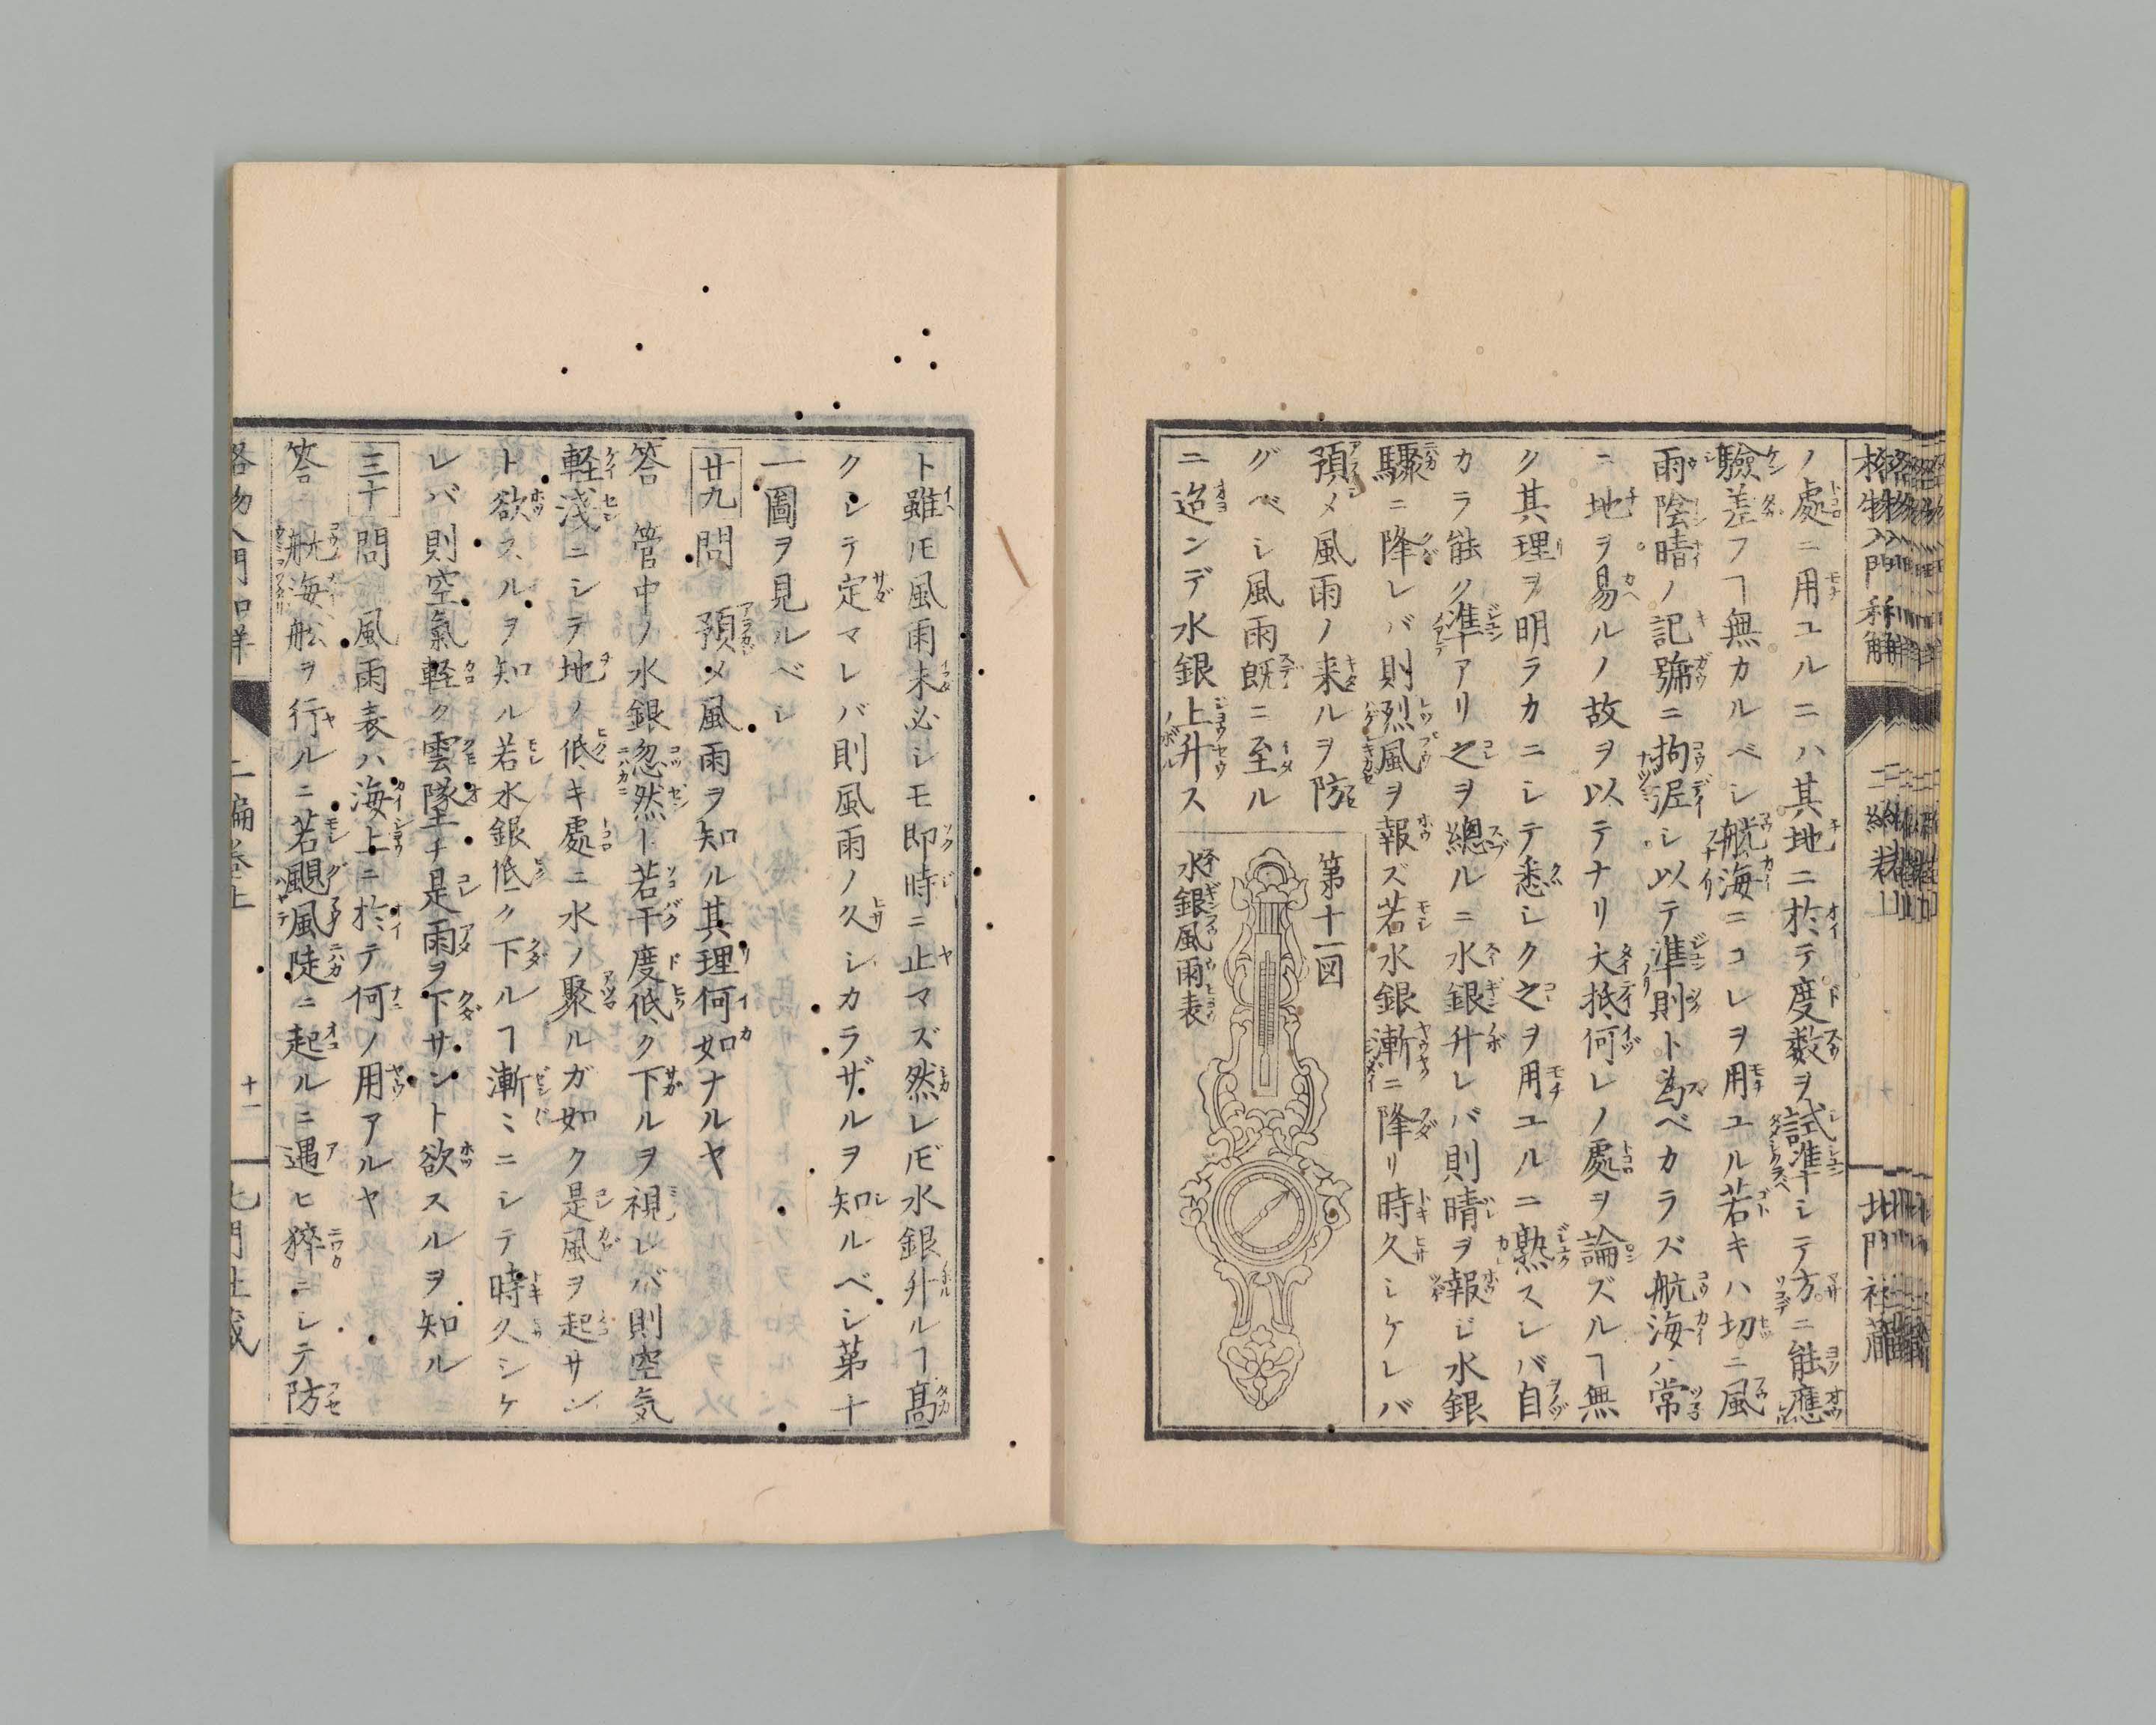 格物入門和解
二編巻上
北門社蔵
ノ處ニ用ユルニハ其地ニ於テ度数ヲ試準シテ方ニ能應
驗差フヿ無カルベシ航海ニコレヲ用ユル若キハ切ニ風
雨陰晴ノ記號ニ拘泥シ以テ準則ト為ベカラズ航海ハ常
ニ地ヲ易ルノ故ヲ以テナリ大抵何レノ處ヲ論ズルヿ無
ク其理ヲ明ラカニシテ悉シク之ヲ用ユルニ熟スレバ自
カラ能ク準アリ之ヲ總ルニ水銀升レバ則晴ヲ報ジ水銀
驟ニ降レバ則烈風ヲ報ズ若水銀漸ニ降リ時久シケレバ
預メ風雨ノ来ルヲ防
グベシ風雨既ニ至ル
ニ迨ンデ水銀上升ス
第十一図
水銀風雨表
ト雖𪜈風雨未必シモ即時ニ止マズ然レ𪜈水銀升ルヿ髙
クシテ定マレバ則風雨ノ久シカラザルヲ知ルベシ第十
一圖ヲ見ルベシ
廿九 問 預メ風雨ヲ知ル其理何如ナルヤ
答 管中ノ水銀忽然ト若干度低ク下ルヲ視レバ則空気
軽浅ニシテ地ノ低キ處ニ水ノ聚ルガ如ク是風ヲ起サン
ト欲スルヲ知ル若水銀低ク下ルヿ漸ミニシテ時久シケ
レバ則空氣軽ク雲隊チ是雨ヲ下サント欲スルヲ知ル
三十 問 風雨表ハ海上ニ於テ何ノ用アルヤ
答 航海舩ヲ行ルニ若颶風陡ニ起ルニ遇ヒ猝ニシテ防
格物入門和解
二編巻上
十一
北門社蔵